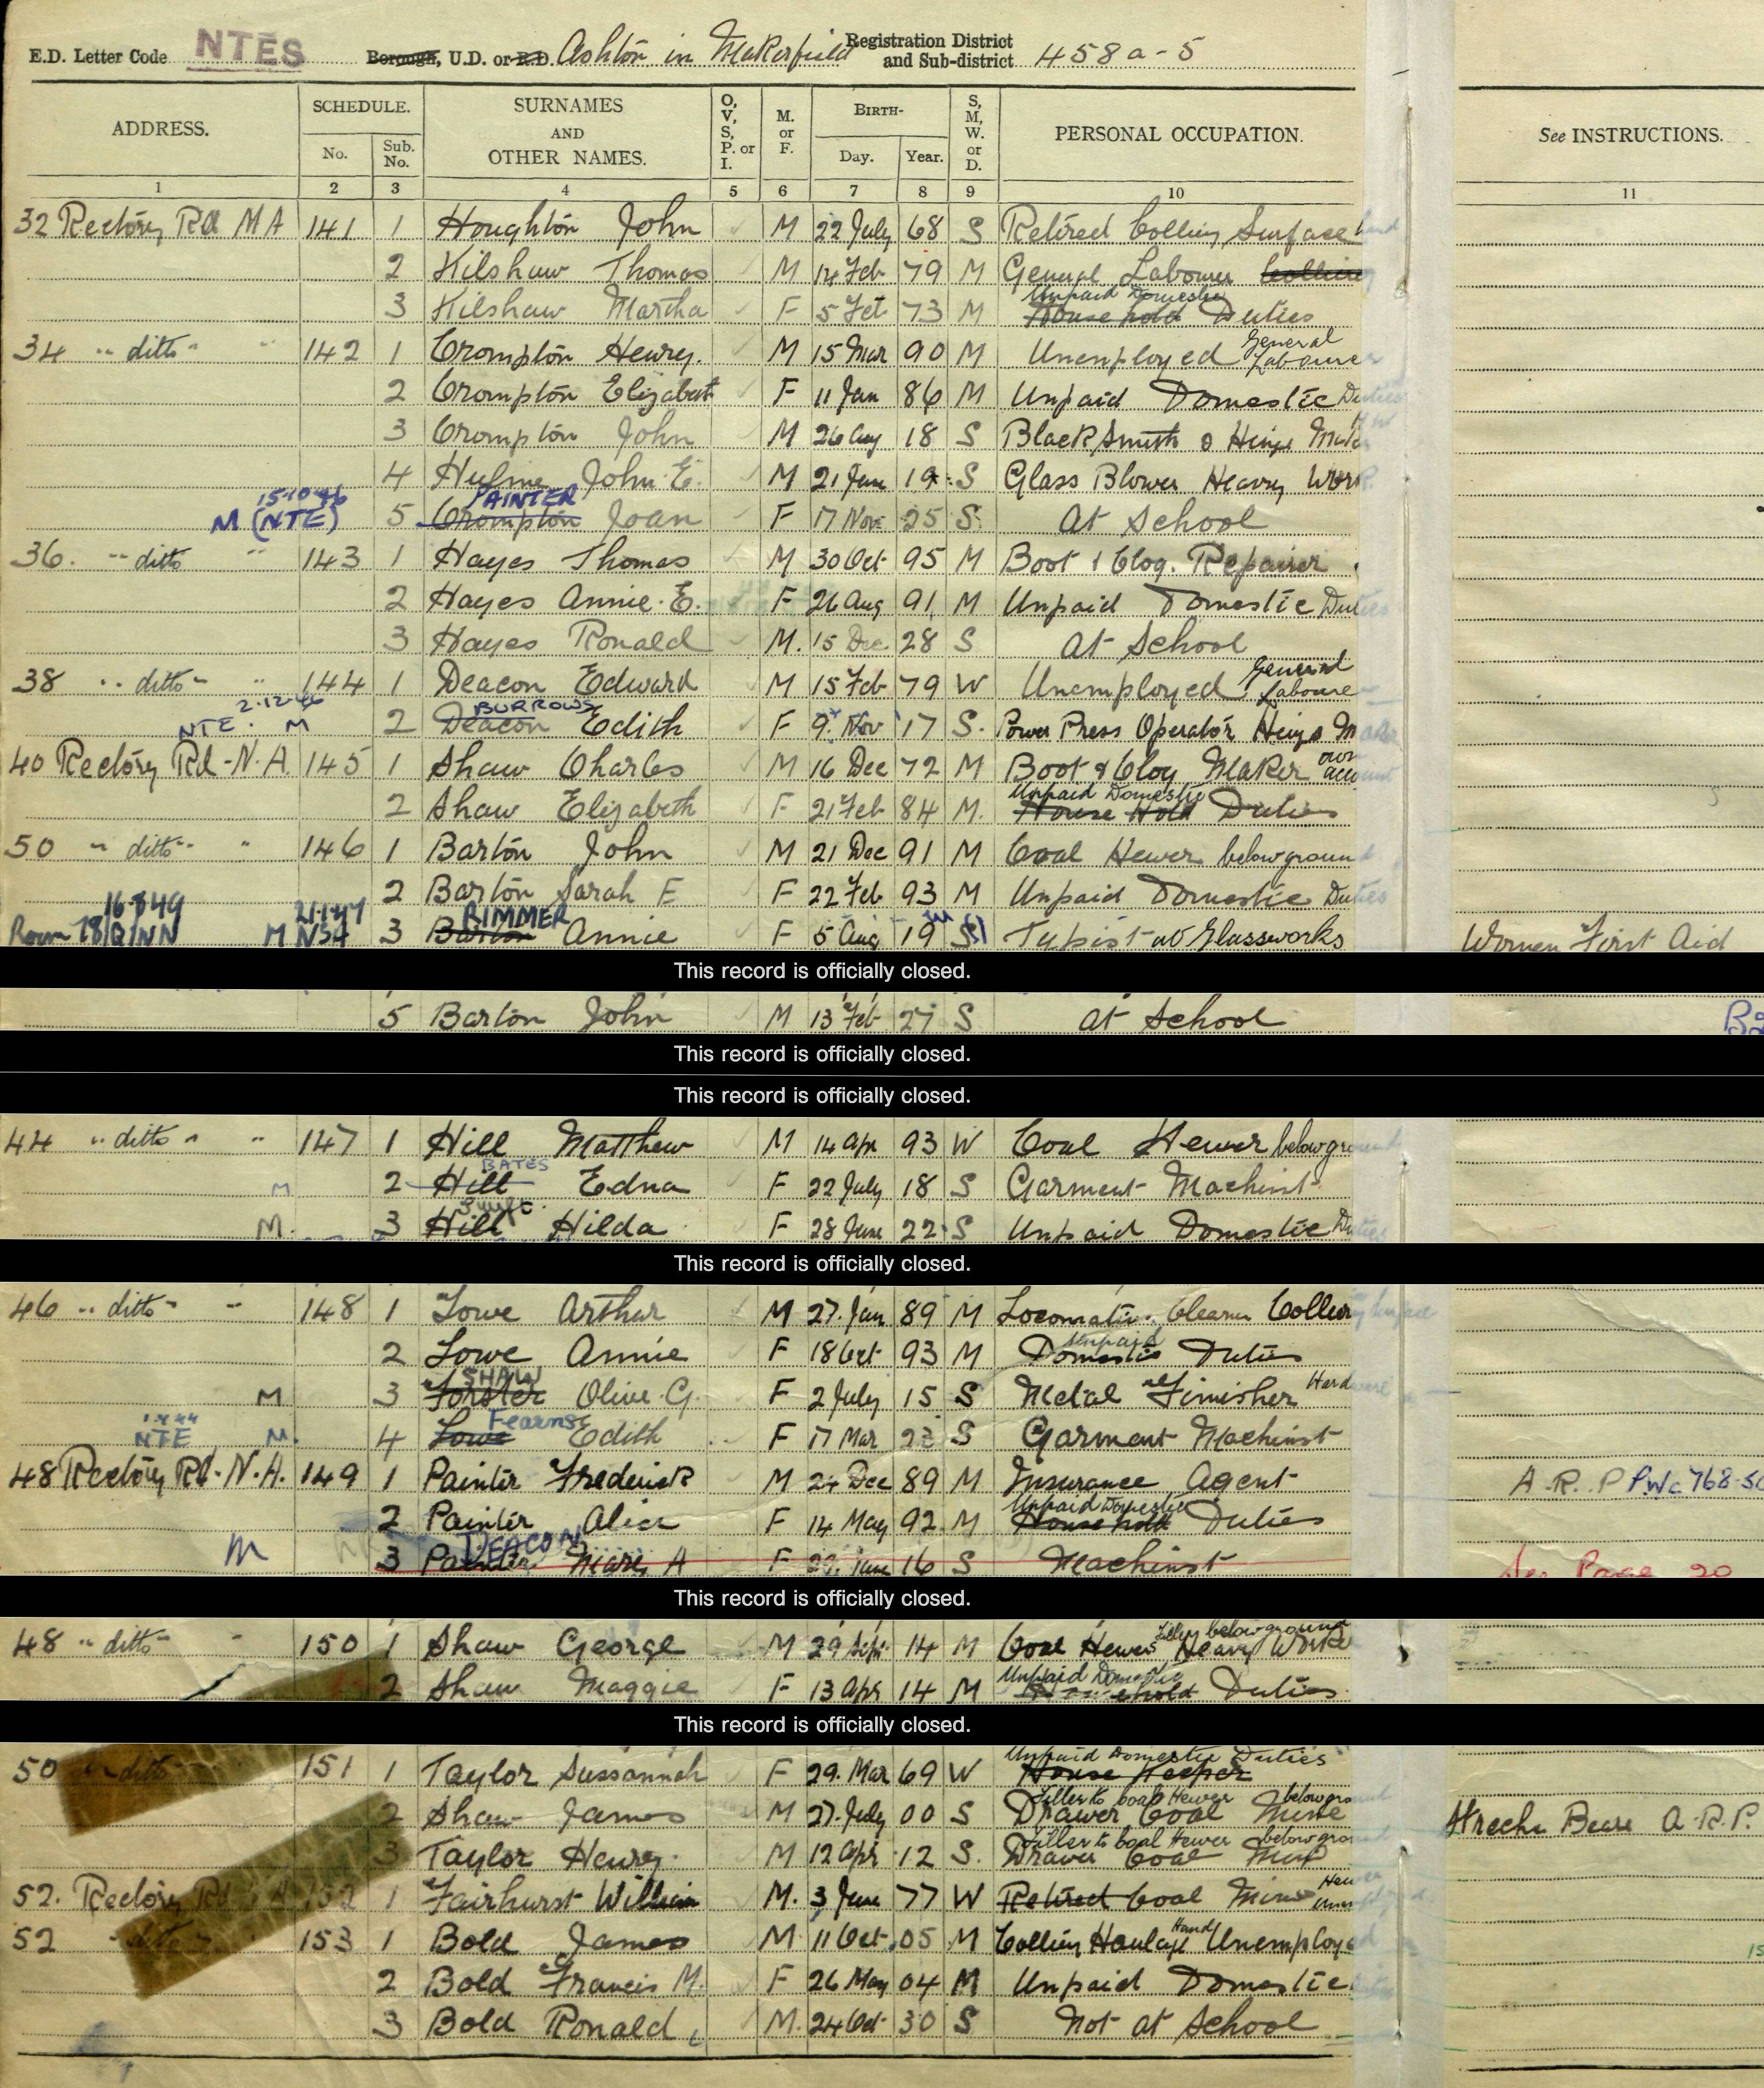 E.D. Letter Code NTES Borough, U.D. or R.D. Ashton in Makerfield Registration District and Sub-district 458a-5
ADDRESS. SCHEDULE. No. Sub. No. SURNAMES AND OTHER NAMES. O, V, S, P. or I. M. or F. BIRTH- Day. Year. S, M, W. or D. PERSONAL OCCUPATION. See INSTRUCTIONS.
1 2 3 4 5 6 7 8 9 10 11
32 Rectory Rd 141 1 Houghton John M 22 July 68 S Retired Colliery Surface
2 Hilshaw Thomas M 14 Feb 79 M General Labourer
3 Hilshaw Martha F 5 Feb 73 M Unpaid Domestic Household Duties
34 " ditto " " 142 1 Crompton Henry. M 15 Mar 90 M Unemployed General Laboure
2 Crompton Elizabet F 11 Jan 86 M Unpaid Domestic Duties
3 Crompton John M 26 Aug 18 S BlackSmith Hinge
4 Hulme John E. M 21 June 19 S Glass Blower Heavy Work
15-10-46 PAINTER
M (NTE) 5 Crompton Joan F 17 Nov 25 S At School
36. " ditto " 143 1 Hayes Thomas M 30 Oct 95 M Boot & Clog. Repairer
2 Hayes Annie. E. F 26 Aug 91 M Unpaid Domestic Duties
3 Hayes Ronald M. 15 Dec 28 S At School
38 " ditto " " 144 1 Deacon Edward M 15 Feb 79 W Unemployed General Laboure
2-12-46 BURROWS
NTE. M 2 Deacon Edith F 9. Nov 17 S. Power Press Operator Hinge
40 Rectory Rd-N.A. 145 1 Shaw Charles M 16 Dec 72 M Boot & Clog Maker own account
2 Shaw Elizabeth F 21 Feb 84 M. Unpaid Domestic House Hold Duties
50 " ditto " " 146 1 Barton John M 21 Dec 91 M Coal Hewer below ground
2 Barton Sarah E F 22 Feb 93 M Unpaid Domestic Duties
RIMMER
M 3 Barton Annie F 5 Aug 19 S Typist at Glassworks Women First Aid
This record is officially closed.
5 Barton John M 13 Feb 27 S at School
This record is officially closed.
This record is officially closed.
44 " ditto " " 147 1 Hill Matthew M 14 Apr 93 W Coal Hewer below ground
BATES
M 2 Hill Edna F 22 July 18 S Garment Machinst
M. 3 Hill Hilda F 28 June 22 S Unpaid Domestic Duties
This record is officially closed.
46 " ditto " " 148 1 Lowe Arthur M 27. Jan 89 M Cleaner
2 Lowe Annie F 18 Oct 93 M Unpaid Domestic Duties
SHAW
M 3 Forster Olive. G. F 2 July 15 S Metal Finisher
Fearns
NTE M. 4 Lowe Edith F 17 Mar S Garment Machinst
48 Rectory Rd-N.A. 149 1 Painter Frederick M 24 Dec 89 M Insurance Agent A.R.P
2 Painter Alice F 14 May 92 M Unpaid Domestic Household Duties
DEACON
M 3 Painter Mary A F June 16 S Machinst See Page 20
This record is officially closed.
48 " ditto " " 150 1 Shaw George M 29 Sept 14 M Coal Hewer Filler below ground Heavy Work
2 Shaw Maggie F 13 Apr 14 M Unpaid Domestic Household Duties
This record is officially closed.
50 " ditto " 151 1 Taylor Sussannah F 29. Mar 69 W Unpaid Domestic Duties House Keeper
2 Shaw James M 27. July 00 S Filler to Coal Hewer below Drawer Coal Mine A.R.P.
3 Taylor Henry. M 12 Apr 12 S. Filler to Coal Hewer below Drawer Coal
52. Rectory Rd 152 1 Fairhurst William M. 3 June 77 W Retired Coal
52 " ditto " 153 1 Bold James M 11 Oct 05 M Colliery Haulage Hand Unemployed
2 Bold Francis M. F 26 May 04 M Unpaid Domestic
3 Bold Ronald M. 24 Oct 30 S Not at School